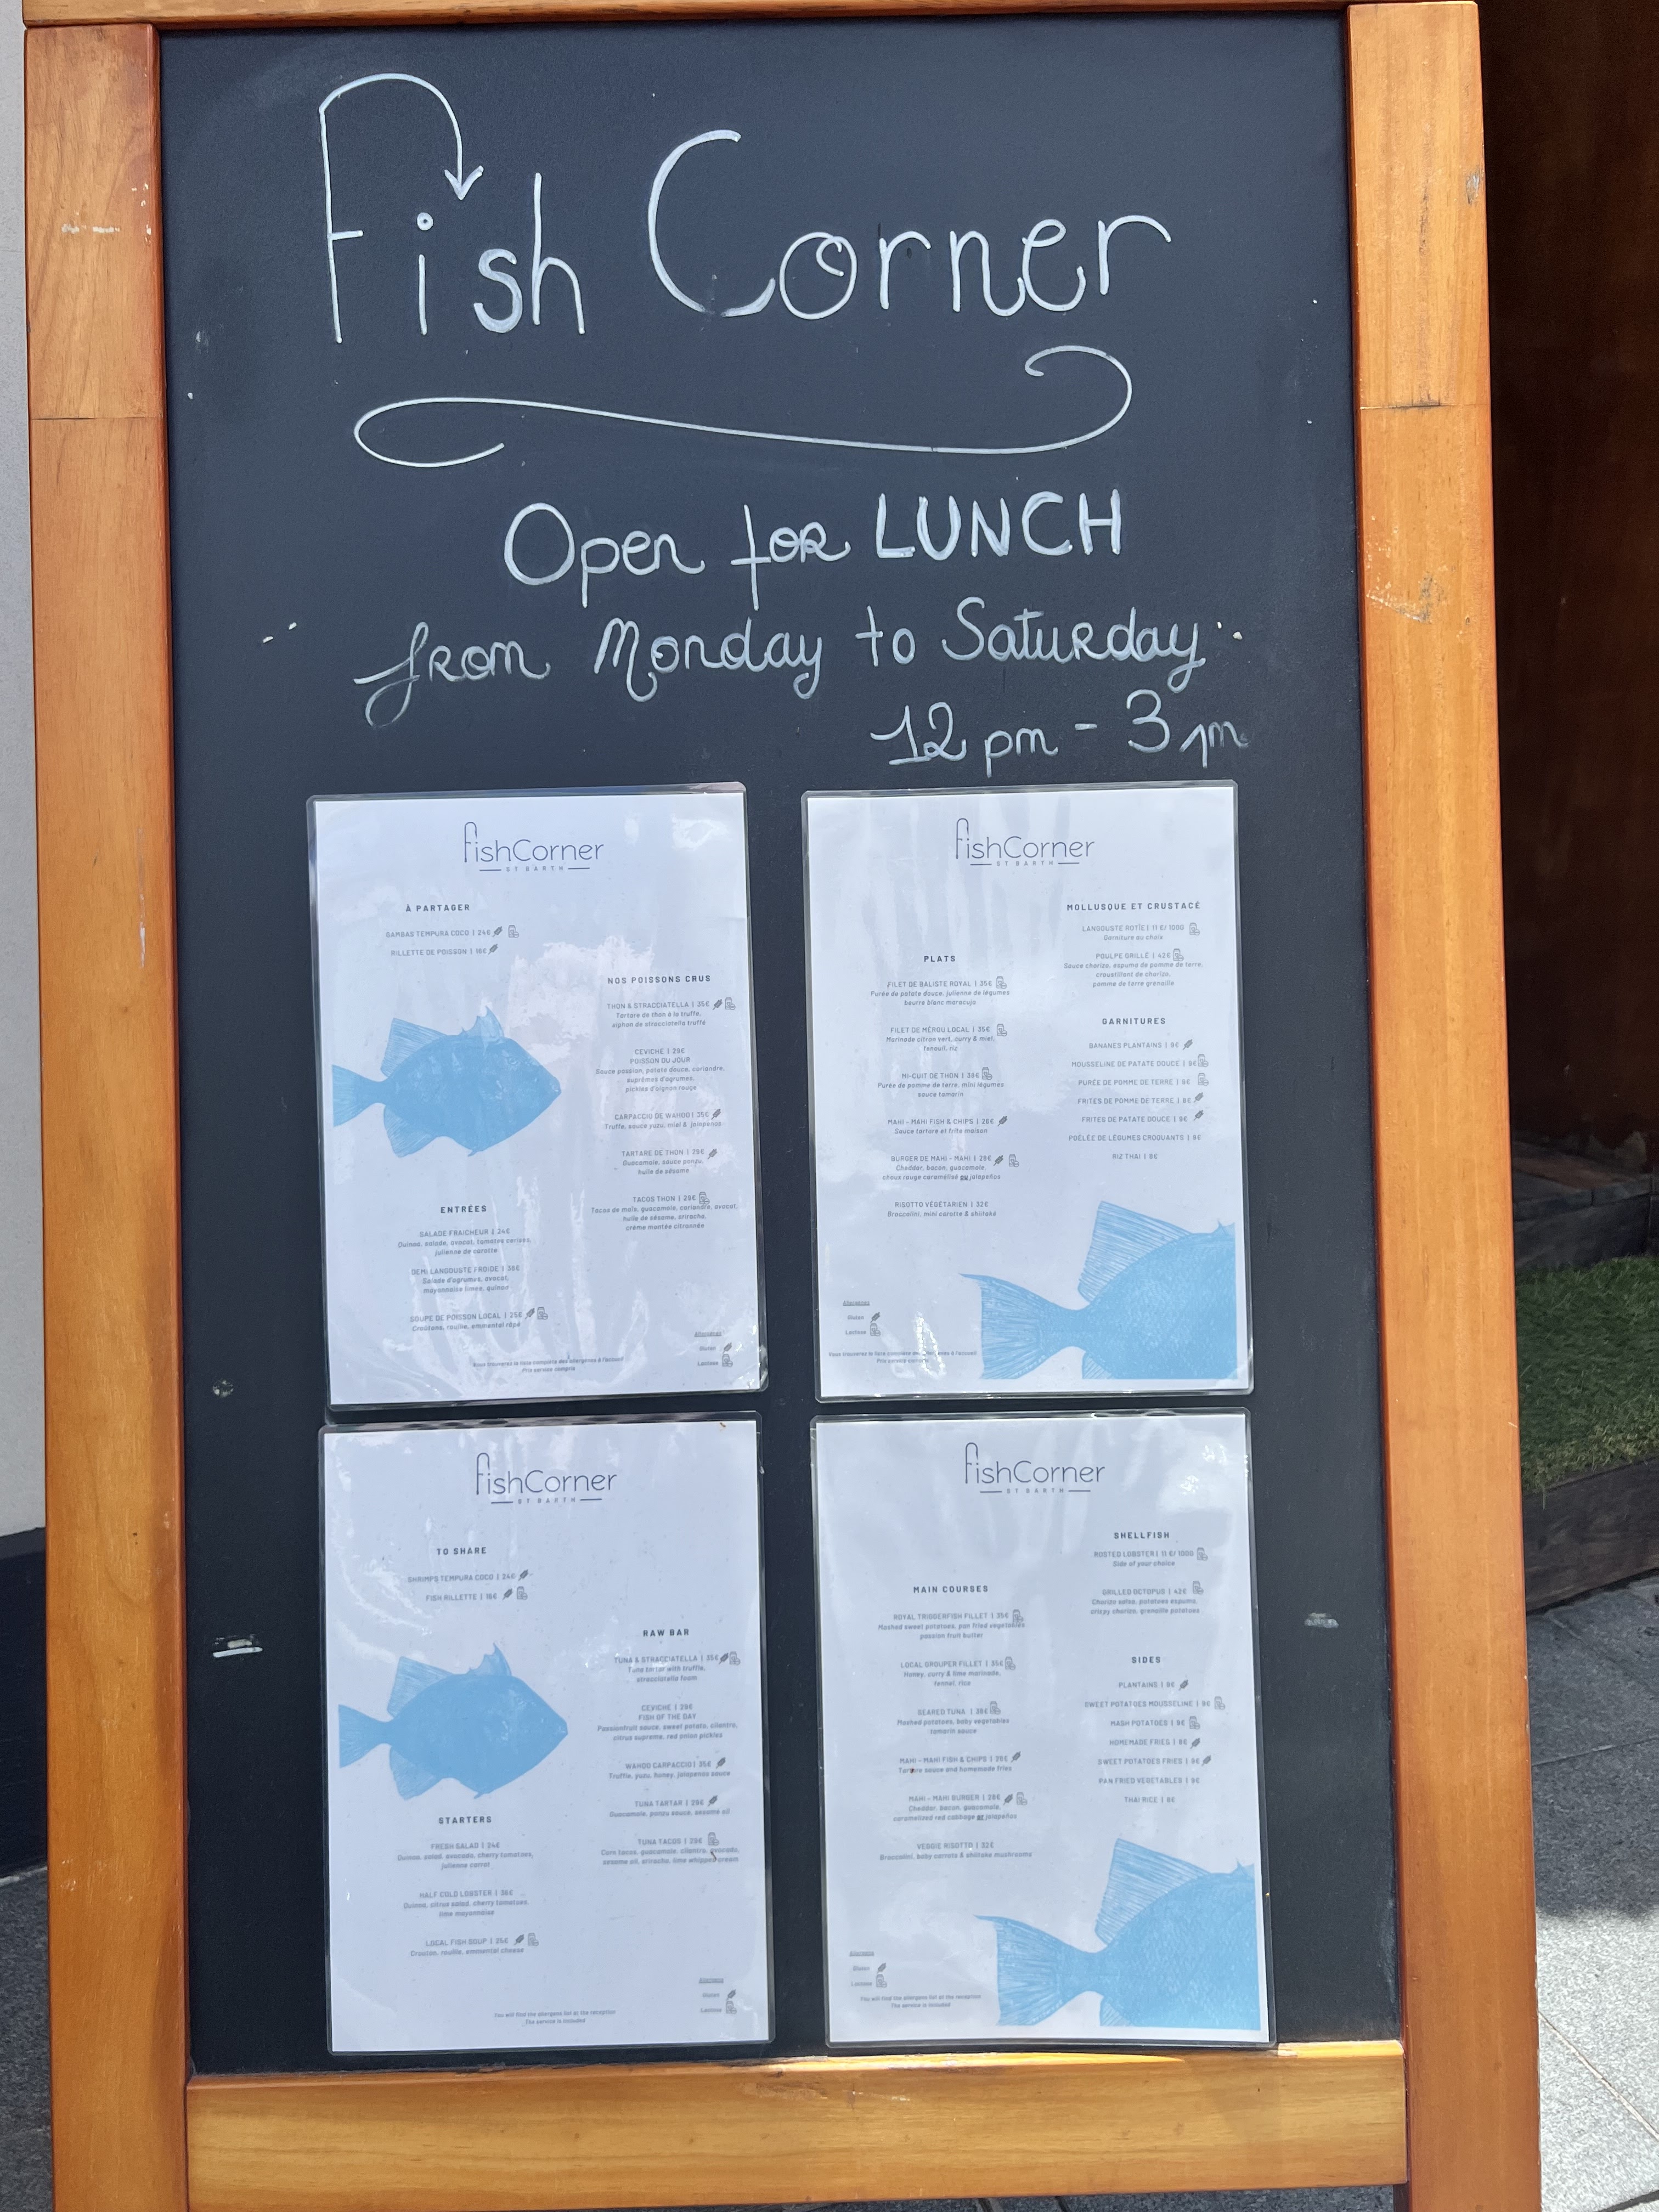 Fish Corner
Open for LUNCH
from Monday to Saturday
12 pm - 3 pm
fishCorner
ST BARTH
À PARTAGER
GAMBAS TEMPURA COCO | 24€
RILLETTE DE POISSON | 16€
NOS POISSONS CRUS
THON & STRACCIATELLA | 35€
Tartare de thon à la truffe,
siphon de stracciatella truffé
CEVICHE | 29€
POISSON DU JOUR
Sauce passion, patate douce, coriandre,
suprêmes d'agrumes,
pickles d'oignon rouge
CARPACCIO DE WAHOO | 35€
Truffe, sauce yuzu, miel & jalapenos
TARTARE DE THON | 29€
Guacamole, sauce ponzu,
huile de sésame
TACOS THON | 29€
Tacos de maïs, guacamole, coriandre, avocat,
huile de sésame, sriracha,
crème montée citronnée
ENTRÉES
SALADE FRAICHEUR | 24€
Quinoa, salade, avocat, tomates cerises,
julienne de carotte
DEMI LANGOUSTE FROIDE | 36€
Salade d'agrumes, avocat,
mayonnaise limes, quinoa
SOUPE DE POISSON LOCAL | 25€
Croûtons, rouille, emmental râpé
Allergènes
Gluten
Lactose
Vous trouverez la liste complète des allergènes à l'accueil
Prix service compris
fishCorner
ST BARTH
PLATS
FILET DE BALISTE ROYAL | 35€
Purée de patate douce, julienne de légumes
beurre blanc maracuja
FILET DE MÉROU LOCAL | 35€
Marinade citron vert, curry & miel,
fenouil, riz
MI-CUIT DE THON | 38€
Purée de pomme de terre, mini légumes
sauce tamarin
MAHI - MAHI FISH & CHIPS | 26€
Sauce tartare et frite maison
BURGER DE MAHI - MAHI | 28€
Cheddar, bacon, guacamole,
choux rouge caramélisé ou jalapeños
RISOTTO VÉGÉTARIEN | 32€
Broccolini, mini carotte & shiitaké
MOLLUSQUE ET CRUSTACÉ
LANGOUSTE ROTÏE | 11 €/ 100G
Garniture au choix
POULPE GRILLÉ | 42€
Sauce chorizo, espuma de pomme de terre,
croustillant de chorizo,
pomme de terre grenaille
GARNITURES
BANANES PLANTAINS | 9€
MOUSSELINE DE PATATE DOUCE | 9€
PURÉE DE POMME DE TERRE | 9€
FRITES DE POMME DE TERRE | 8€
FRITES DE PATATE DOUCE | 9€
POÊLÉE DE LÉGUMES CROQUANTS | 9€
RIZ THAI | 8€
Allergènes
Gluten
Lactose
Vous trouverez la liste complète des allergènes à l'accueil
Prix service compris
fishCorner
ST BARTH
TO SHARE
SHRIMPS TEMPURA COCO | 24€
FISH RILLETTE | 16€
RAW BAR
TUNA & STRACCIATELLA | 35€
Tuna tartar with truffle,
stracciatella foam
CEVICHE | 29€
FISH OF THE DAY
Passionfruit sauce, sweet potato, cilantro,
citrus supreme, red onion pickles
WAHOO CARPACCIO | 35€
Truffle, yuzu, honey, jalapenos sauce
TUNA TARTAR | 29€
Guacamole, ponzu sauce, sesame oil
TUNA TACOS | 29€
Corn tacos, guacamole, cilantro, avocado,
sesame oil, sriracha, lime whipped cream
STARTERS
FRESH SALAD | 24€
Quinoa, salad, avocado, cherry tomatoes,
julienne carrot
HALF COLD LOBSTER | 36€
Quinoa, citrus salad, cherry tomatoes
lime mayonnaise
LOCAL FISH SOUP | 25€
Crouton, rouille, emmental cheese
Allergens
Gluten
Lactose
You will find the allergens list at the reception
The service is included
fishCorner
ST BARTH
MAIN COURSES
ROYAL TRIGGERFISH FILLET | 35€
Mashed sweet potatoes, pan fried vegetables
passion fruit butter
LOCAL GROUPER FILLET | 35€
Honey, curry & lime marinade,
fennel, rice
SEARED TUNA | 38€
Mashed potatoes, baby vegetables
tamarin sauce
MAHI - MAHI FISH & CHIPS | 26€
Tartare sauce and homemade fries
MAHI - MAHI BURGER | 28€
Cheddar, bacon, guacamole,
caramelized red cabbage or jalapeños
VEGGIE RISOTTO | 32€
Broccolini, baby carrots & shiitake mushrooms
SHELLFISH
ROSTED LOBSTER | 11 €/ 100G
Side of your choice
GRILLED OCTOPUS | 42€
Chorizo salsa, potatoes espuma,
crispy chorizo, grenaille potatoes
SIDES
PLANTAINS | 9€
SWEET POTATOES MOUSSELINE | 9€
MASH POTATOES | 9€
HOMEMADE FRIES | 8€
SWEET POTATOES FRIES | 9€
PAN FRIED VEGETABLES | 9€
THAI RICE | 8€
Allergens
Gluten
Lactose
You will find the allergens list at the reception
The service is included